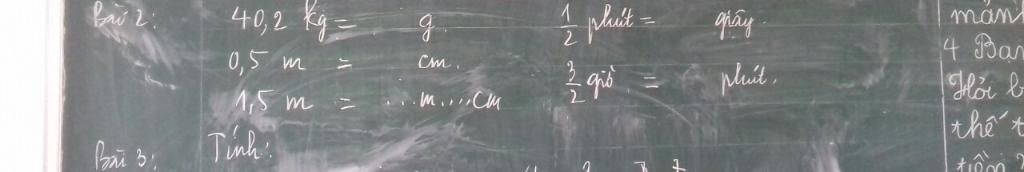 Bài 2: 40,2 kg = g 1/2 phút = giây.
0,5 m = cm.
3/2 giờ = phút.
1,5 m = ...m....cm
Bài 3: Tính:
mản
4 Bạn
Hỏi b
thế t
tiền